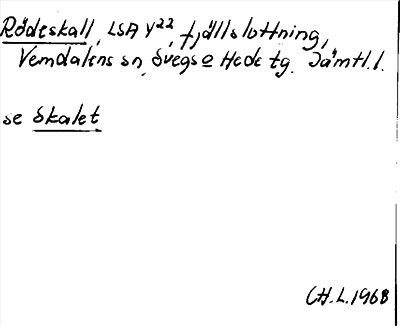 Rödeskall, LSA Y²², fjällsluttning,
Vemdalens sn, Svegs o Hede tg. Jämtl. l.
se Skalet
CH. L. 1968